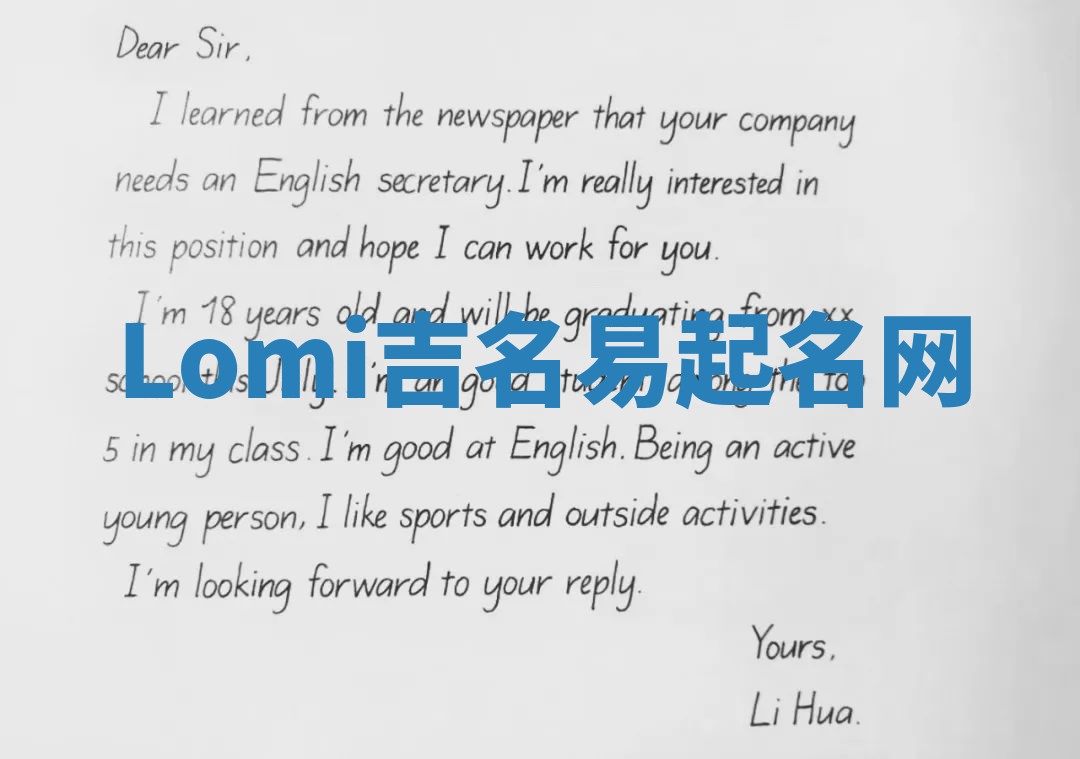 Dear Sir,
I learned from the newspaper that your company
needs an English secretary. I'm really interested in
this position and hope I can work for you.
I'm 18 years old and will be graduating from xx
Lomi吉名易起名网
school this July. I'm an good student among the top
5 in my class. I'm good at English. Being an active
young person, I like sports and outside activities.
I'm looking forward to your reply.
Yours,
Li Hua.